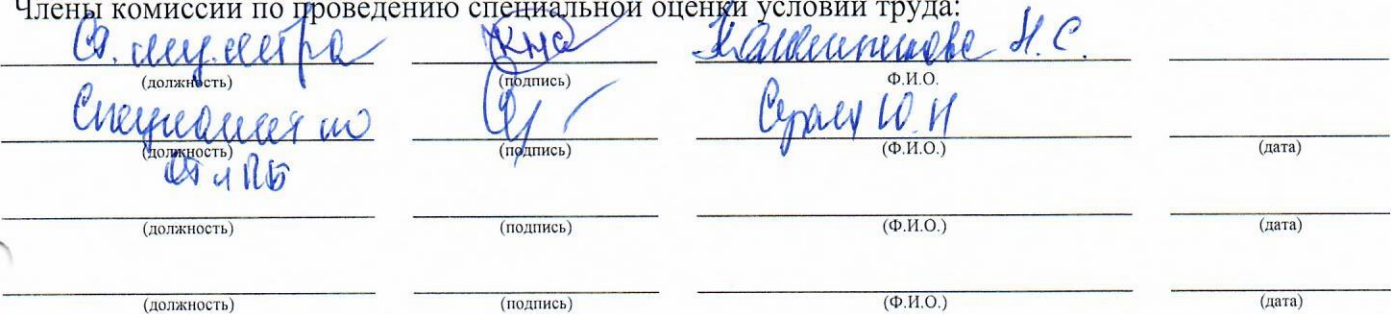 Члены комиссии по проведению специальной оценки условий труда:
Ст. мед. сестра КНС Н.С.
(должность) (подпись) Ф.И.О.
Специалист по Ю.Н
(должность) (подпись) (Ф.И.О.) (дата)
ОТ и ПБ
(должность) (подпись) (Ф.И.О.) (дата)
(должность) (подпись) (Ф.И.О.) (дата)